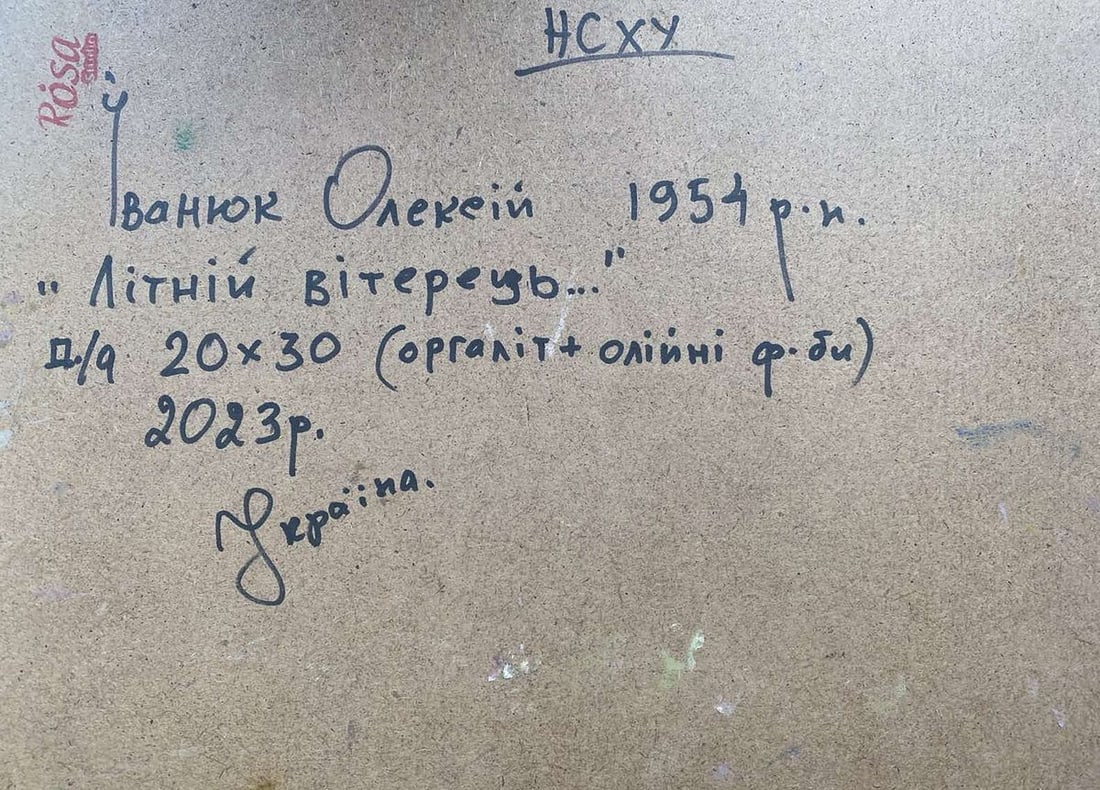 НСХУ
Rosa
studio
Іванюк Олексій 1954 р.н.
"Літній вітерець..."
Д/а 20×30 (оргаліт+ олійні ф.би)
2023р.
Україна.